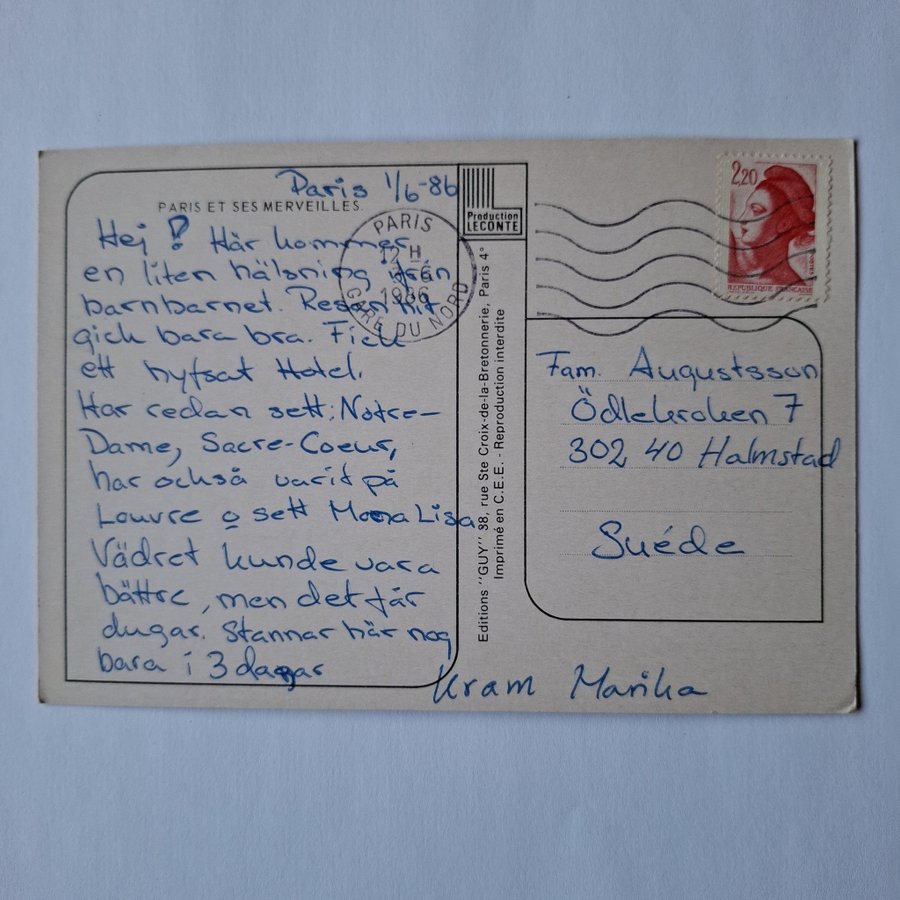 Paris 1/6-86
PARIS ET SES MERVEILLES.
Hej! Här kommer
en liten hälsning från
barnbarnet. Resan hit
gick bara bra. Fick
ett hyfsat Hotel.
Har redan sett: Notre-
Dame, Sacre-Coeur,
har också varit på
Louvre o sett Mona Lisa
Vädret kunde vara
bättre, men det får
dugar. Stannar här nog
bara i 3 dagar
Kram Marika
PARIS
12 H
1986
GARE DU NORD
Production
LECONTE
Editions "GUY" 38, rue Ste Croix-de-la-Bretonnerie, Paris 4°
Imprimé en C.E.E. - Reproduction interdite
2,20
REPUBLIQUE FRANÇAISE
Fam. Augustsson
Ödlekroken 7
302 40 Halmstad
Suéde